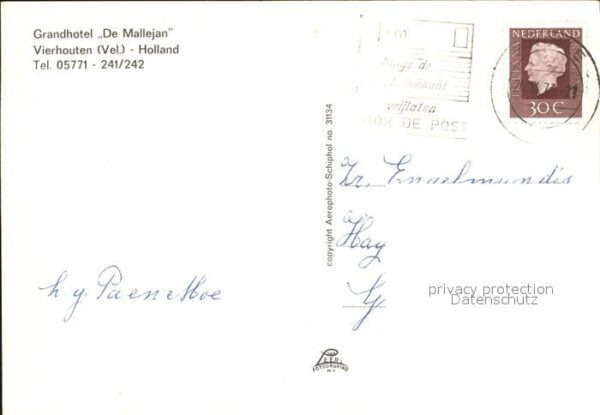 Grandhotel „De Mallejan"
Vierhouten (Vel.) - Holland
Tel. 05771 - 241/242
langs de
vrijlaten
VOOR DE POST
NEDERLAND
JULIANA
30 C
copyright Aerophoto-Schiphol no. 31134
Zr. Engelmundis
Hay
h. g. Pa en Moe
privacy protection
Datenschutz
FOTODRUKIND
N.V.